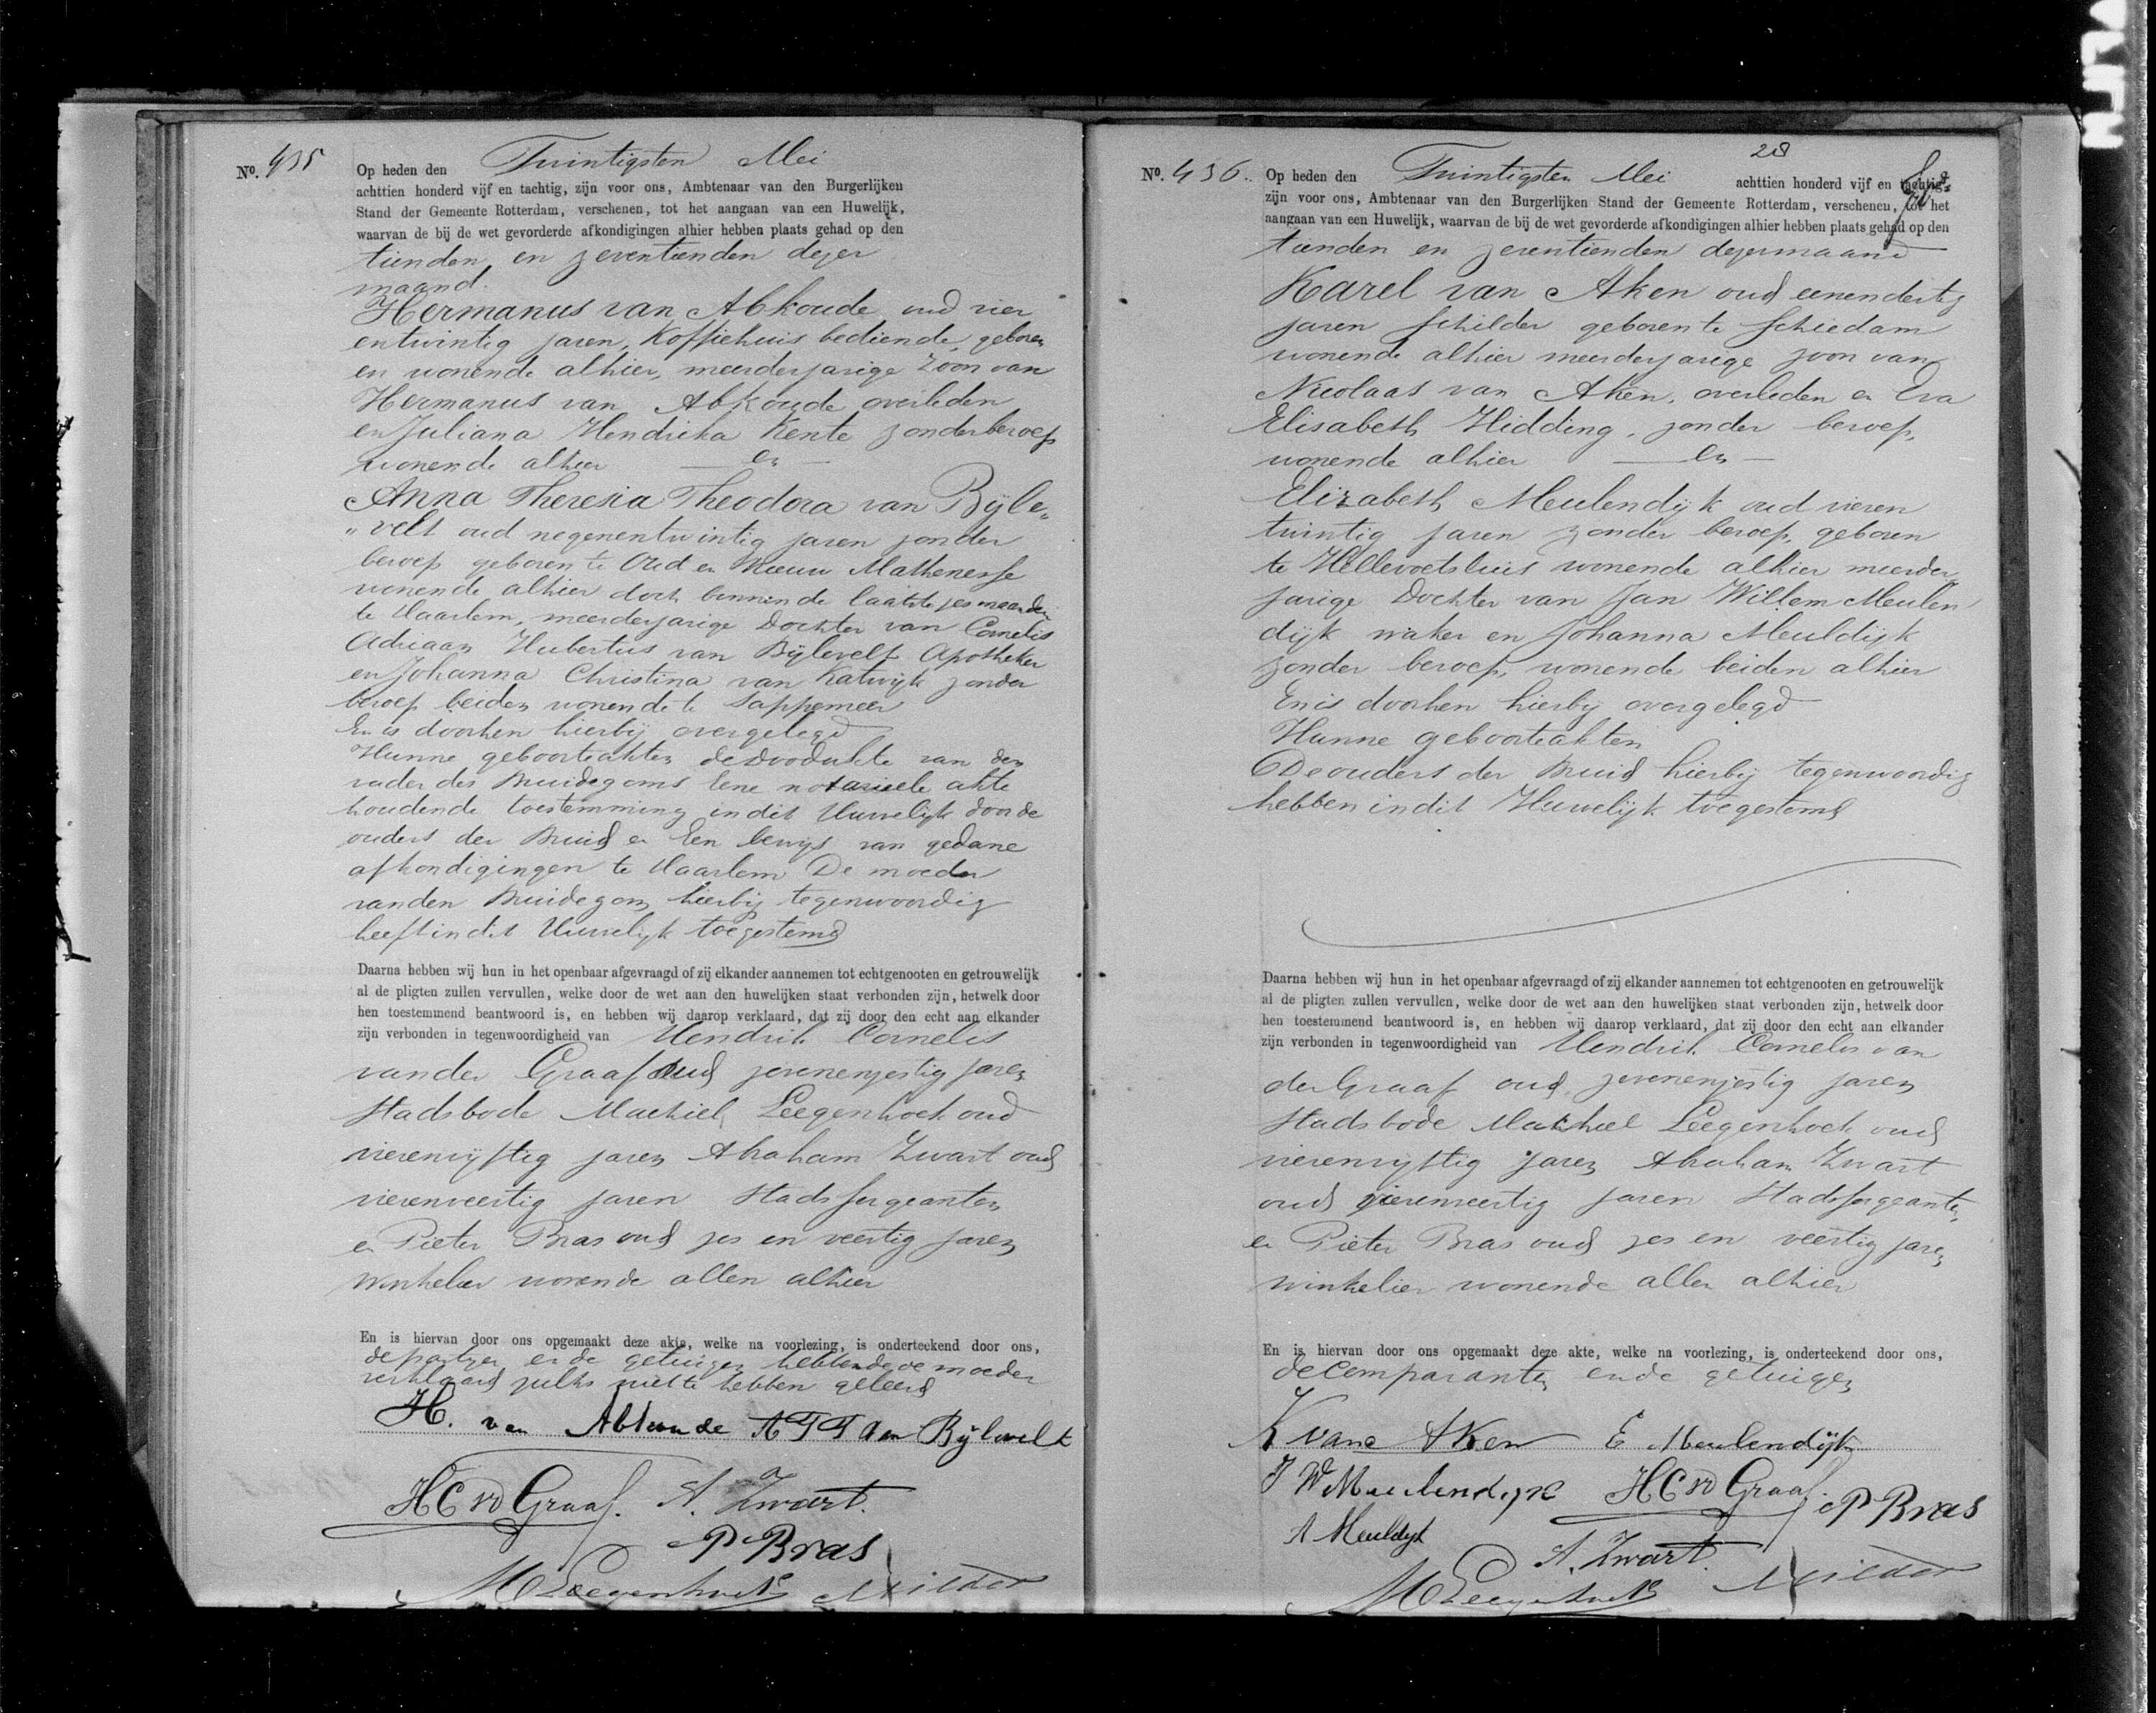 No. 435 Op heden den Twintigsten Mei
achttien honderd vijf en tachtig, zijn voor ons, Ambtenaar van den Burgerlijken
Stand der Gemeente Rotterdam, verschenen, tot het aangaan van een Huwelijk,
waarvan de bij de wet gevorderde afkondigingen alhier hebben plaats gehad op den
tienden en zeventienden dezer
maand.
Hermanus van Abkoude oud vier
entwintig jaren, Koffiehuis bediende, geboren
en wonende alhier, meerderjarige Zoon van
Hermanus van Abkoude overleden
en Juliana Hendrika Kente zonder beroep
wonende alhier en
Anna Theresia Theodora van Bijle„
„velt oud negenentwintig jaren zonder
beroep geboren te Oud en Nieuw Mathenesse
wonende alhier doch binnen de laatste zes maanden
te Haarlem, meerderjarige Dochter van Cornelis
Adriaan Hubertus van Bijlevelt Apotheker
en Johanna Christina van Katwijk zonder
beroep beiden wonende te Sappemeer
En is doorhen hierbij overgelegd
Hunne geboorteakten de doodakte van den
vader des Bruidegoms Eene notarieele akte
houdende toestemming in dit Huwelijk door de
ouders der Bruid en Een bewijs van gedane
afkondigingen te Haarlem De moeder
van den Bruidegom hierbij tegenwoordig
heeft in dit Huwelijk toegestemd
Daarna hebben wij hun in het openbaar afgevraagd of zij elkander aannemen tot echtgenooten en getrouwelijk
al de pligten zullen vervullen, welke door de wet aan den huwelijken staat verbonden zijn, hetwelk door
hen toestemmend beantwoord is, en hebben wij daarop verklaard, dat zij door den echt aan elkander
zijn verbonden in tegenwoordigheid van Hendrik Cornelis
van der Graaf oud zevenenzestig jaren
Stadsbode Machiel Leegenhoek oud
vierenvijftig jaren Abraham Zwart oud
vierenveertig jaren Stadssergeanten
en Pieter Bras oud zes en veertig jaren
Winkelier wonende allen alhier
En is hiervan door ons opgemaakt deze akte, welke na voorlezing, is onderteekend door ons,
de partijen en de getuigen hebbende de moeder
verklaard zulks niet te hebben geleerd
H. van Abkoude ATT van Bijlevelt
HC vd Graaf. A. Zwart.
P Bras
M Leegenhoek
No. 436. Op heden den Twintigsten Mei 218 achttien honderd vijf en tachtig,
zijn voor ons, Ambtenaar van den Burgerlijken Stand der Gemeente Rotterdam, verschenen, tot het
aangaan van een Huwelijk, waarvan de bij de wet gevorderde afkondigingen alhier hebben plaats gehad op den
tienden en zeventienden dezer maand
Karel van Aken oud eenendertig
jaren Schilder geboren te Schiedam
wonende alhier meerderjarige zoon van
Nicolaas van Aken, overleden en Eva
Elisabeth Hidding, zonder beroep,
wonende alhier en
Elizabeth Meulendijk oud vieren
twintig jaren zonder beroep, geboren
te Hellevoetsluis wonende alhier meerder
jarige Dochter van Jan Willem Meulen
dijk waker en Johanna Meuldijk
zonder beroep, wonende beiden alhier
En is doorhen hierbij overgelegd
Hunne geboorteakten
De ouders der Bruid hierbij tegenwoordig
hebben in dit Huwelijk toegestemd
Daarna hebben wij hun in het openbaar afgevraagd of zij elkander aannemen tot echtgenooten en getrouwelijk
al de pligten zullen vervullen, welke door de wet aan den huwelijken staat verbonden zijn, hetwelk door
hen toestemmend beantwoord is, en hebben wij daarop verklaard, dat zij door den echt aan elkander
zijn verbonden in tegenwoordigheid van Hendrik Cornelis van
der Graaf oud zevenenzestig jaren
Stadsbode Machiel Leegenhoek oud
vierenvijftig jaren Abraham Zwart
oud vierenveertig jaren Stadssergeanten
en Pieter Bras oud zes en veertig jaren
winkelier wonende allen alhier
En is hiervan door ons opgemaakt deze akte, welke na voorlezing, is onderteekend door ons,
de comparanten en de getuigen
K van Aken E Meulendijk
J W Meulendijk HC vd Graaf. P Bras
A Meuldijk
A. Zwart.
M Leegenhoek